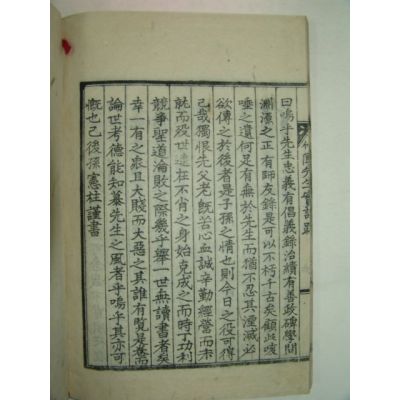 曰嗚乎先生忠義有倡義錄治績有善政碑學問
淵源之正有師友錄是可以不朽千古矣顧此咳
唾之遺何足有無於先生而猶不忍其湮滅必
欲傳之於後者是子孫之情也則今日之役可得
已哉獨恨先父老旣苦心血誠辛勤經營而未
就而歿世達在不肖之身始克成之而時丁功利
競爭聖道淪敗之際幾乎擧一世無讀書者矣
幸一有之衆且大賤而大惡之其誰有覽是書而
論世考德能知慕先生之風者乎嗚乎其亦可
慨也已後孫憲柱謹書
先生實記跋